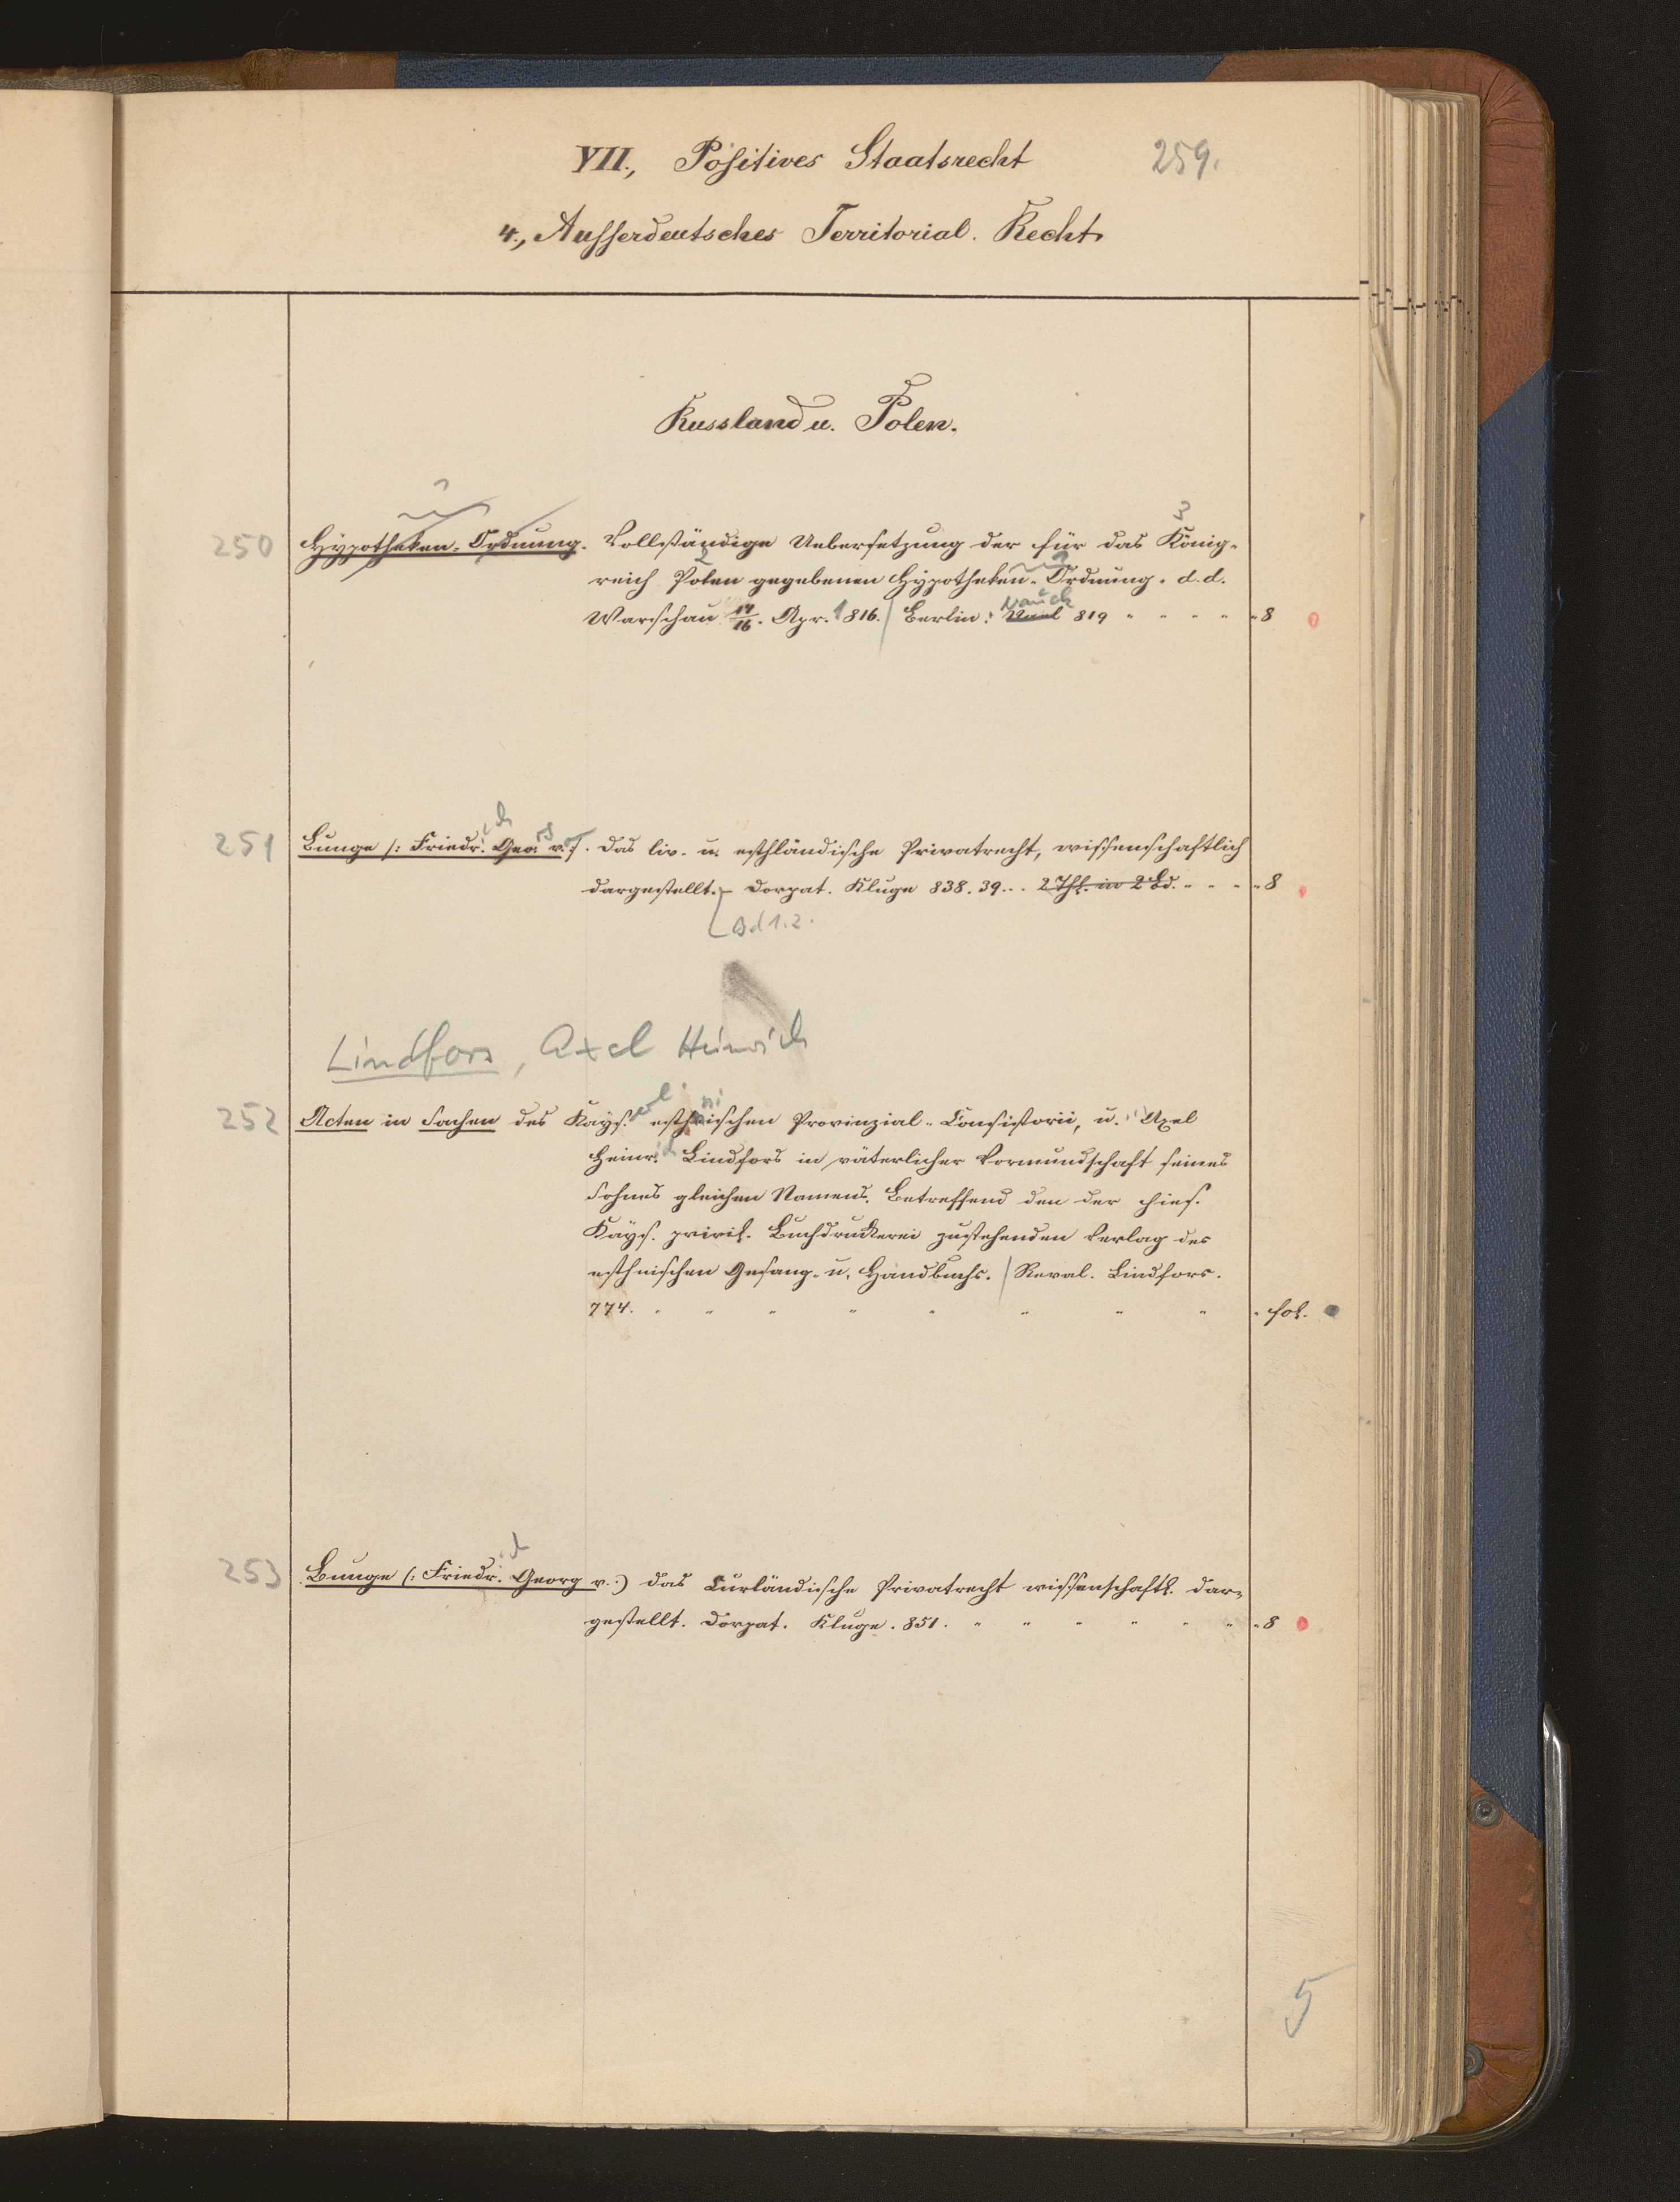 VII., Positives Staatsrecht 259.
4., Ausserdeutsches Territorial. Recht.
Russland u. Polen.
250 Hypotheken-Ordnung. Vollständige Uebersetzung der für das König-
reich Polen gegebenen Hypotheken-Ordnung. d. d.
Warschau 14/16. Apr. 1816. / Berlin: Nauck 819 " " " " " 8
251 Bunge /: Friedr.ich Geo.rg v. :/. Das liv- u. esthländische Privatrecht, wissenschaftlich
dargestellt. – Dorpat. Kluge 838. 39... 2 Thl. in 2 Bd. " " " " 8
Bd 1.2.
Lindfors, Axel Heinrich
252 Acten in Sachen des Kays. esthnischen Provinzial-Consistorii, u. Axel
Heinr.ich Lindfors in väterlicher Vormundschaft seines
Sohnes gleichen Namens. Betreffend den der hies.
Kays. privil. Buchdruckerei zustehenden Verlag des
esthnischen Gesang- u. Handbuchs. / Reval. Lindfors.
774. " " " " " " " " " fol.
253 Bunge (: Friedr.ich Georg v. :) Das Curländische Privatrecht wissenschaftl. dar-
gestellt. Dorpat. Kluge. 851. " " " " " " " 8
5